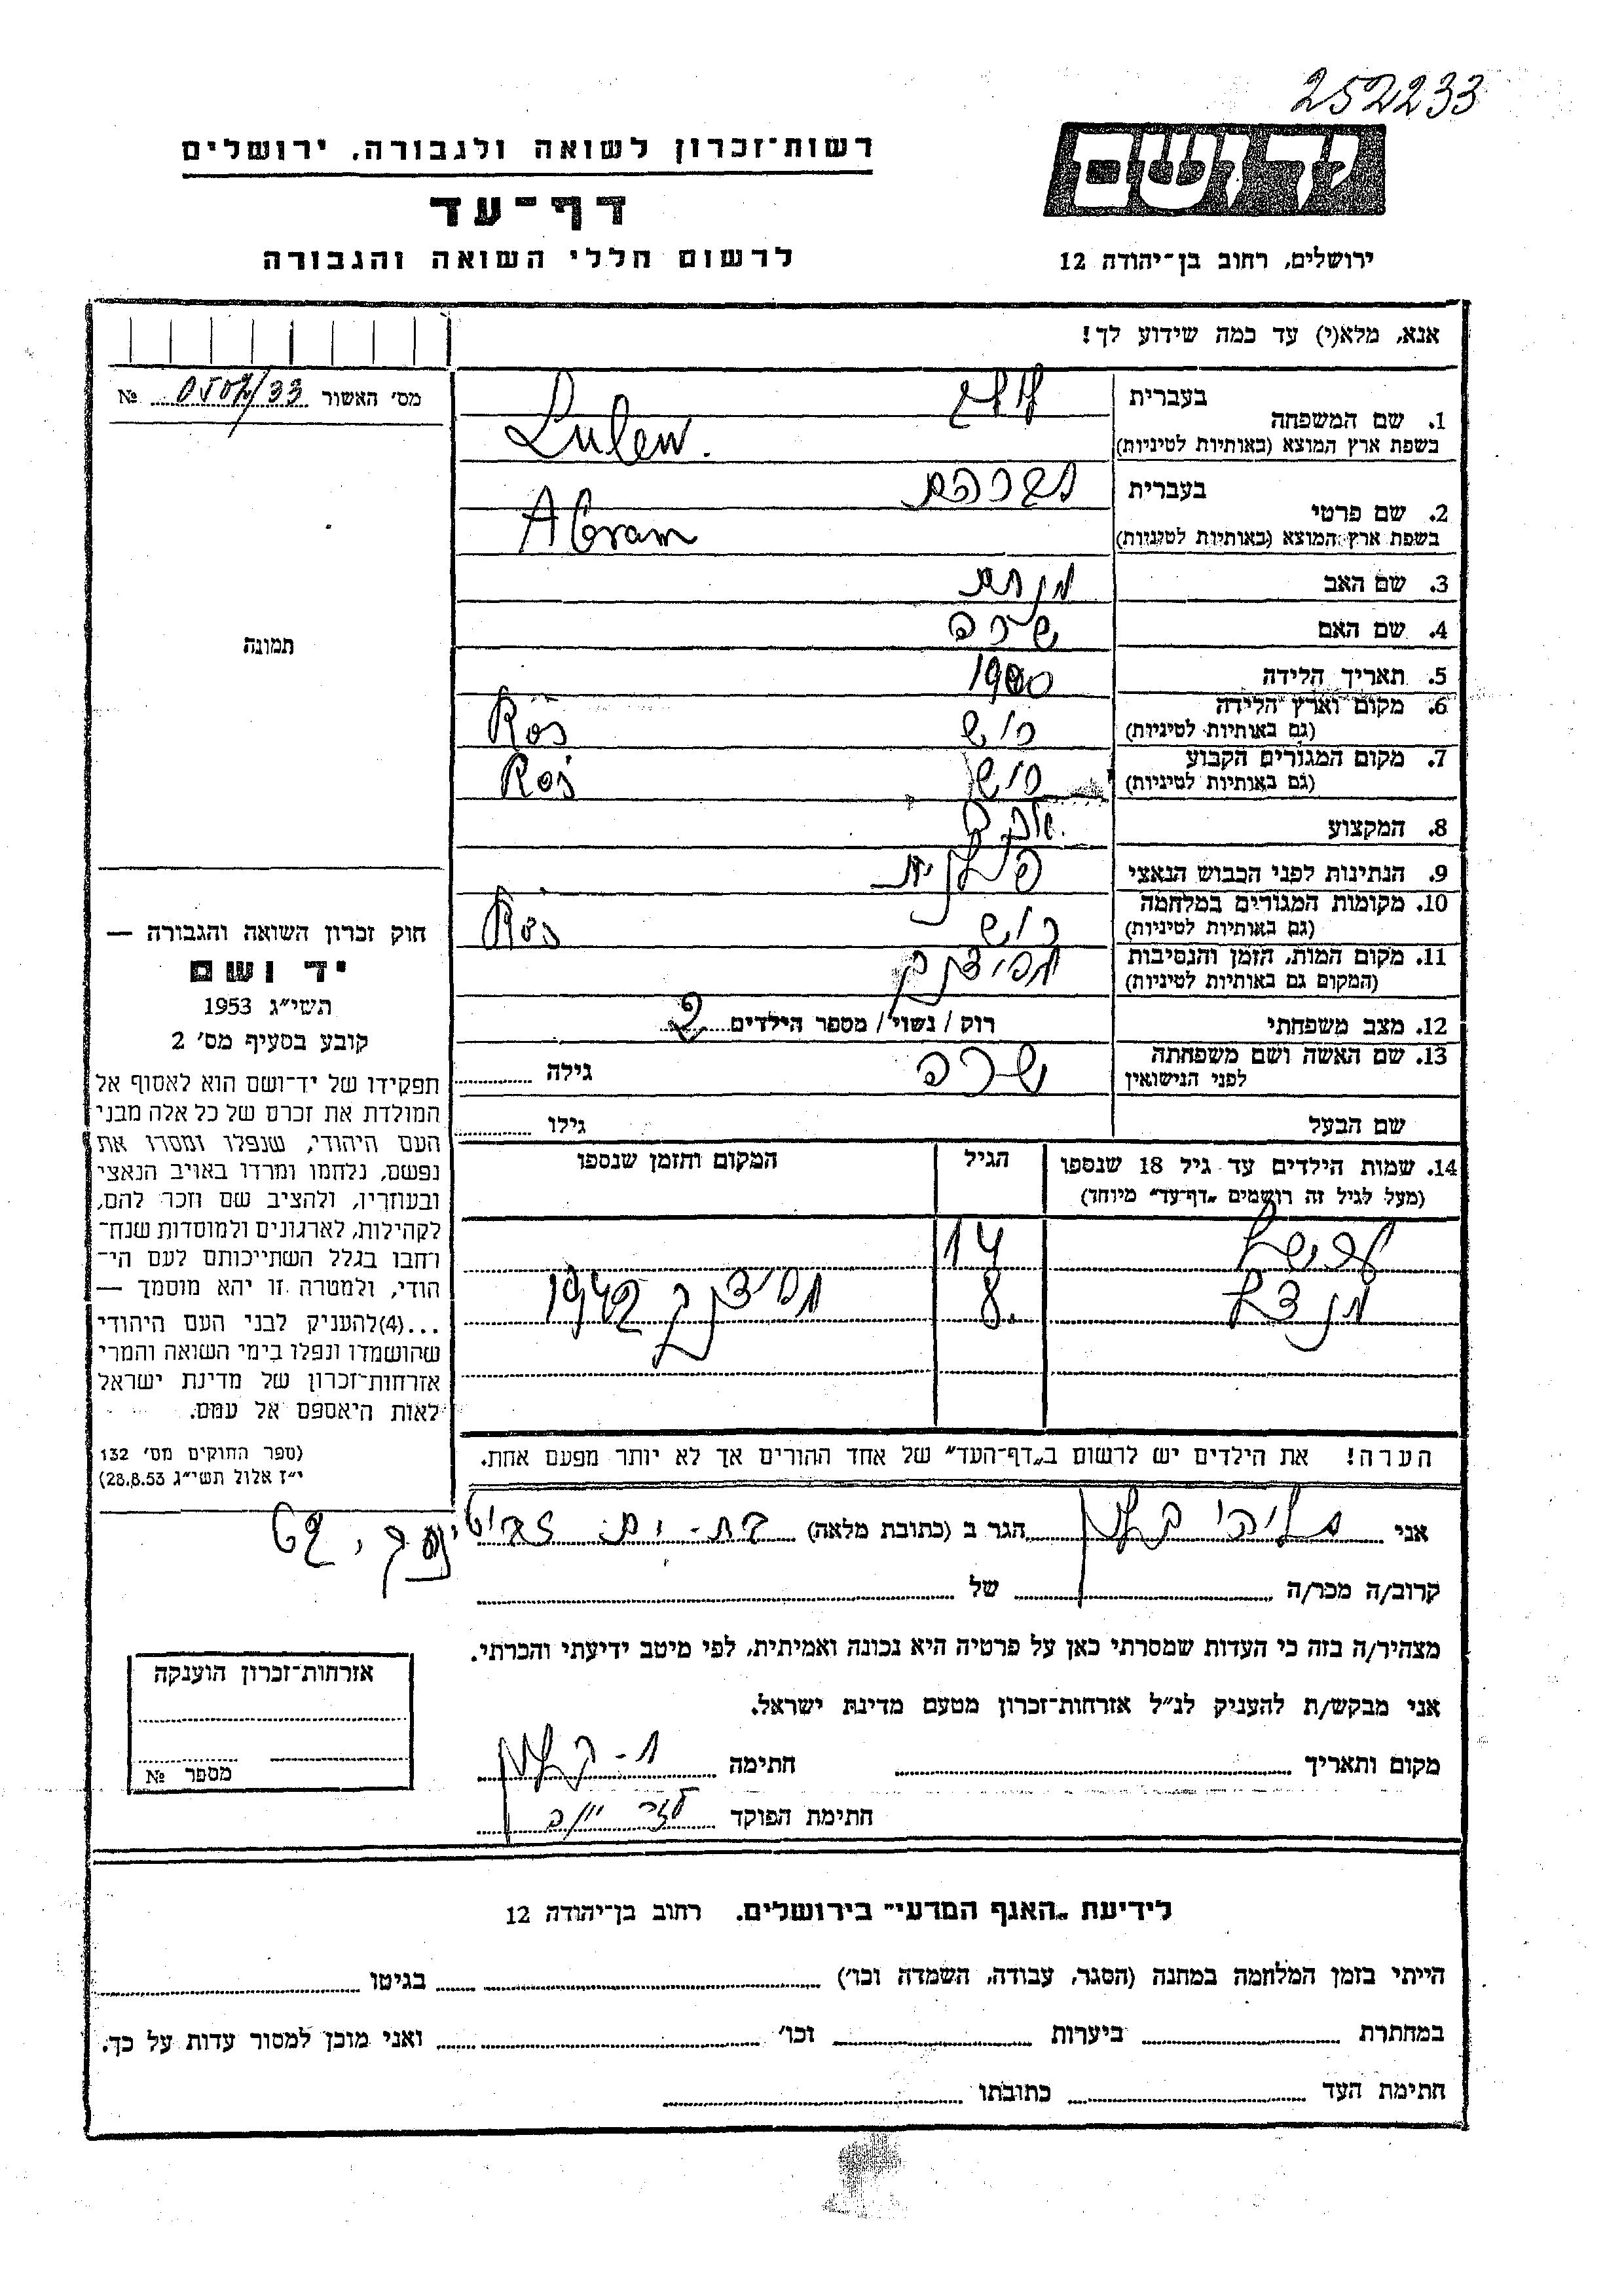 252233
יד ושם
רשות־זכרון לשואה ולגבורה. ירושלים
דף־עד
לרשום חללי השואה והגבורה
ירושלים, רחוב בן־יהודה 12
אנא, מלא(י) עד כמה שידוע לך!
מס׳ האשור №
1. שם המשפחה
בעברית
בשפת ארץ המוצא (באותיות לטיניות) Lulew.
2. שם פרטי
בעברית אברהם
בשפת ארץ המוצא (באותיות לטיניות) Abram
3. שם האב
4. שם האם שרה
5. תאריך הלידה 1900
6. מקום וארץ הלידה רוש Ros
(גם באותיות לטיניות)
7. מקום המגורים הקבוע רוש Ros
(גם באותיות לטיניות)
8. המקצוע
9. הנתינות לפני הכבוש הנאצי פולנית
10. מקומות המגורים במלחמה רוש Ros
(גם באותיות לטיניות)
11. מקום המות, הזמן והנסיבות מיידנק
(המקום גם באותיות לטיניות)
12. מצב משפחתי רוק / נשוי / מספר הילדים 2
13. שם האשה ושם משפחתה שרה גילה
לפני הנישואין
שם הבעל גילו
14. שמות הילדים עד גיל 18 שנספו הגיל המקום והזמן שנספו
(מעל לגיל זה רושמים „דף־עד״ מיוחד)
14
8. מיידנק 1942
הערה! את הילדים יש לרשום ב„דף־העד״ של אחד ההורים אך לא יותר מפעם אחת.
תמונה
חוק זכרון השואה והגבורה —
יד ושם
תשי״ג 1953
קובע בסעיף מס׳ 2
תפקידו של יד־ושם הוא לאסוף אל
המולדת את זכרם של כל אלה מבני
העם היהודי, שנפלו ומסרו את
נפשם, נלחמו ומרדו באויב הנאצי
ובעוזריו, ולהציב שם וזכר להם,
לקהילות, לארגונים ולמוסדות שנח־
רחבו בגלל השתייכותם לעם הי־
הודי, ולמטרה זו יהא מוסמך —
...(4)להעניק לבני העם היהודי
שהושמדו ונפלו בימי השואה והמרי
אזרחות־זכרון של מדינת ישראל
לאות היאספם אל עמם.
(ספר החוקים מס׳ 132
י״ז אלול תשי״ג 28.8.53)
אני הגר ב (כתובת מלאה) בת-ים
קרוב/ה מכר/ה של
מצהיר/ה בזה כי העדות שמסרתי כאן על פרטיה היא נכונה ואמיתית, לפי מיטב ידיעתי והכרתי.
אני מבקש/ת להעניק לנ״ל אזרחות־זכרון מטעם מדינת ישראל.
מקום ותאריך חתימה
חתימת הפוקד
אזרחות־זכרון הוענקה
מספר №
לידיעת „האגף המדעי״ בירושלים. רחוב בן־יהודה 12
הייתי בזמן המלחמה במחנה (הסגר, עבודה, השמדה וכו׳) בגיטו
במחתרת ביערות וכו׳ ואני מוכן למסור עדות על כך.
חתימת העד כתובתו